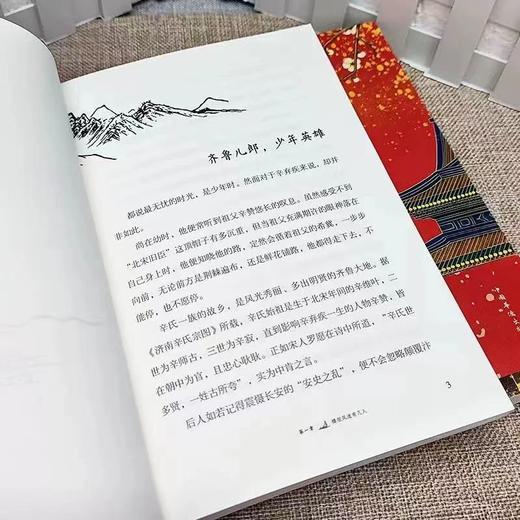 齐鲁儿郎，少年英雄
都说最无忧的时光，是少年时。然而对于辛弃疾来说，却并
非如此。
尚在幼时，他便常听到祖父辛赞悠长的叹息。虽然感受不到
“北宋旧臣”这顶帽子有多沉重，但当祖父充满期许的眼神落在
自己身上时，他便知晓他的路，定然会循着祖父的希冀，一步步
向前，无论前方是荆棘遍布，还是鲜花铺路，他都得走下去，不
能停，也不愿停。
辛氏一族的故乡，是风光秀丽、多出明贤的齐鲁大地。据
《济南辛氏宗图》所载，辛氏始祖是生于北宋年间的辛维叶，二
世为辛师古，三世为辛寂，直到影响辛弃疾一生的人物辛赞，皆
在朝中为官，且忠心耿耿。正如宋人罗愿在诗中所道，“辛氏世
多贤，一姓古所夸”，实为中肯之言。
后人如若记得震慑长安的“安史之乱”，便不会忽略颠覆汴
3
第一章 栖留风流有几人